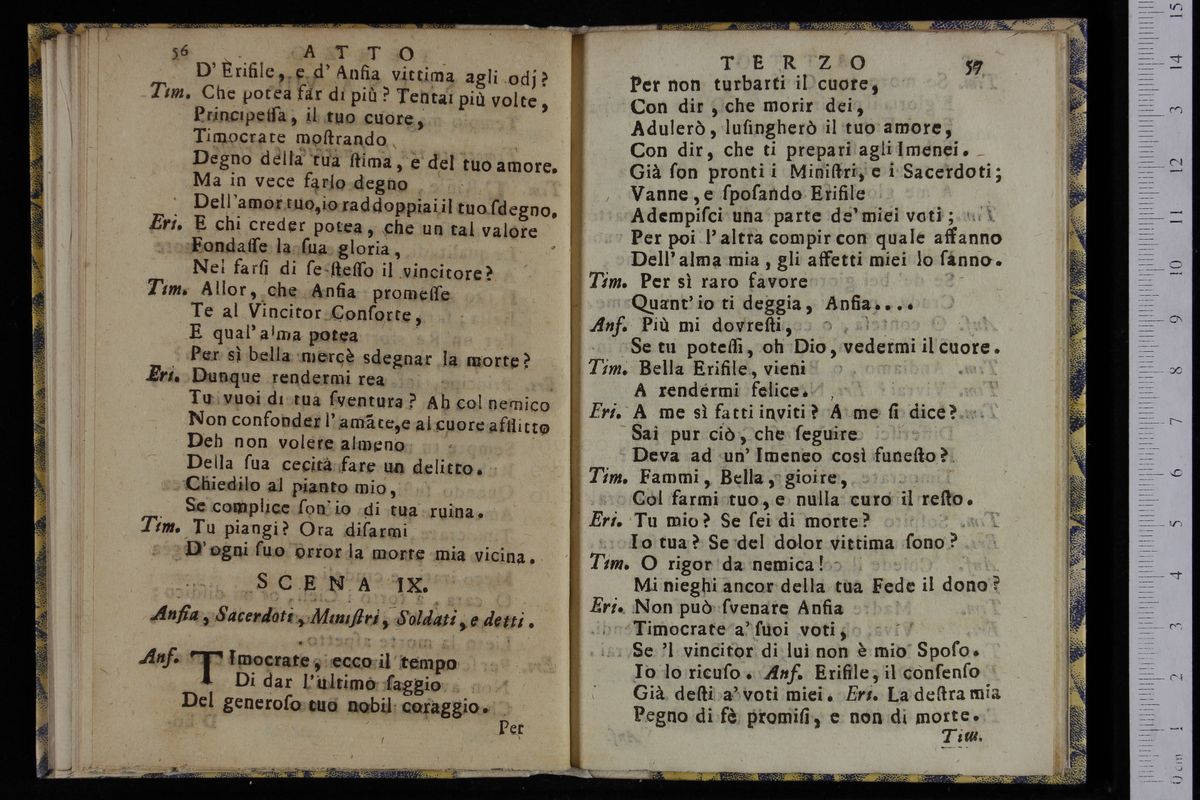 56 ATTO
D' Erifile, e d' Anſia vittima agli odj?
Tim. Che potea far di più? Tentai più volte,
Principeſſa, il tuo cuore,
Timocrate moſtrando
Degno della tua ſtima, e del tuo amore.
Ma in vece farlo degno
Dell'amor tuo, io raddoppiai il tuo ſdegno.
Eri. E chi creder potea, che un tal valore
Fondaſſe la ſua gloria,
Nel farſi di ſe ſteſſo il vincitore?
Tim. Allor, che Anſia promeſſe
Te al Vincitor Conſorte,
E qual' alma potea
Per sì bella mercè sdegnar la morte?
Eri. Dunque rendermi rea
Tu vuoi di tua ſventura? Ah col nemico
Non confonder l' amãte, e al cuore afflitto
Deh non volere almeno
Della ſua cecità fare un delitto.
Chiedilo al pianto mio,
Se complice ſon' io di tua ruina.
Tim. Tu piangi? Ora diſarmi
D'ogni ſuo orror la morte mia vicina.
SCENA IX.
Anſia, Sacerdoti, Miniſtri, Soldati, e detti.
Anſ. TImocrate, ecco il tempo
Di dar l'ultimo ſaggio
Del generoſo tuo nobil coraggio.
Per
TERZO 57
Per non turbarti il cuore,
Con dir, che morir dei,
Adulerò, luſingherò il tuo amore,
Con dir, che ti prepari agli Imenei.
Già ſon pronti i Miniſtri, e i Sacerdoti;
Vanne, e ſpoſando Erifile
Adempiſci una parte de' miei voti;
Per poi l' altra compir con quale affanno
Dell' alma mia, gli affetti miei lo ſanno.
Tim. Per sì raro favore
Quant' io ti deggia, Anſia....
Anſ. Più mi dovreſti,
Se tu poteſſi, oh Dio, vedermi il cuore.
Tim. Bella Erifile, vieni
A rendermi felice.
Eri. A me sì fatti inviti? A me ſi dice?
Sai pur ciò, che ſeguire
Deva ad un' Imeneo così funeſto?
Tim. Fammi, Bella, gioire,
Col farmi tuo, e nulla curo il reſto.
Eri. Tu mio? Se ſei di morte?
Io tua? Se del dolor vittima ſono?
Tim. O rigor da nemica!
Mi nieghi ancor della tua Fede il dono?
Eri. Non può ſvenare Anſia
Timocrate a' ſuoi voti,
Se 'l vincitor di lui non è mio Spoſo.
Io lo ricuſo. Anſ. Erifile, il conſenſo
Già deſti a' voti miei. Eri. La deſtra mia
Pegno di fè promiſi, e non di morte.
Tim.
0 cm 1 2 3 4 5 6 7 8 9 10 11 12 3 14 15